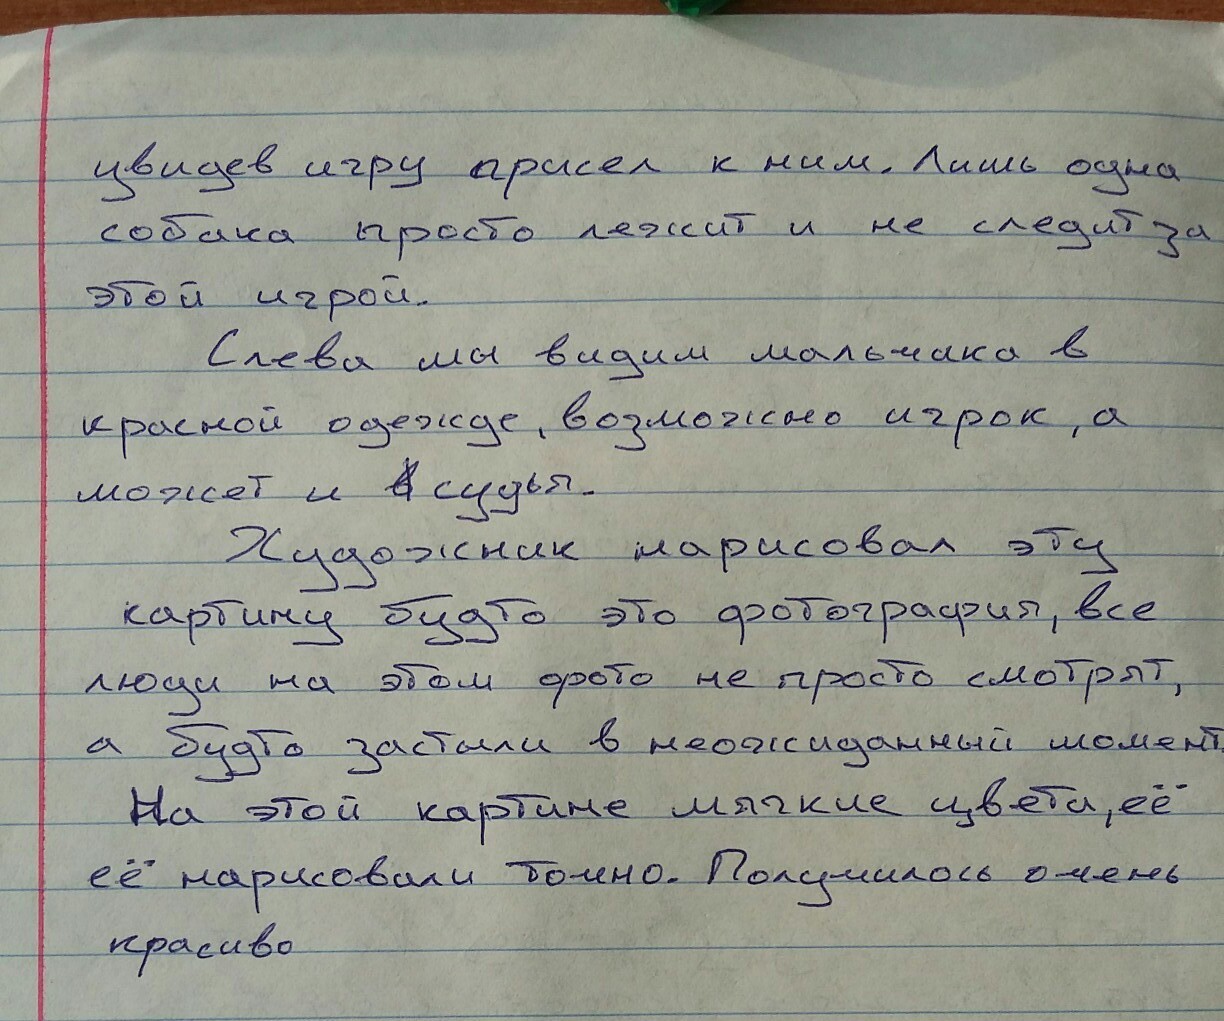 увидев игру присел к ним. Лишь одна
собака просто лежит и не следит за
этой игрой.
Слева мы видим мальчика в
красной одежде, возможно игрок, а
может и судья.
Художник нарисовал эту
картину будто это фотография, все
люди на этом фото не просто смотрят,
а будто застыли в неожиданный момент
На этой картине мягкие цвета, её
её нарисовали точно. Получилось очень
красиво